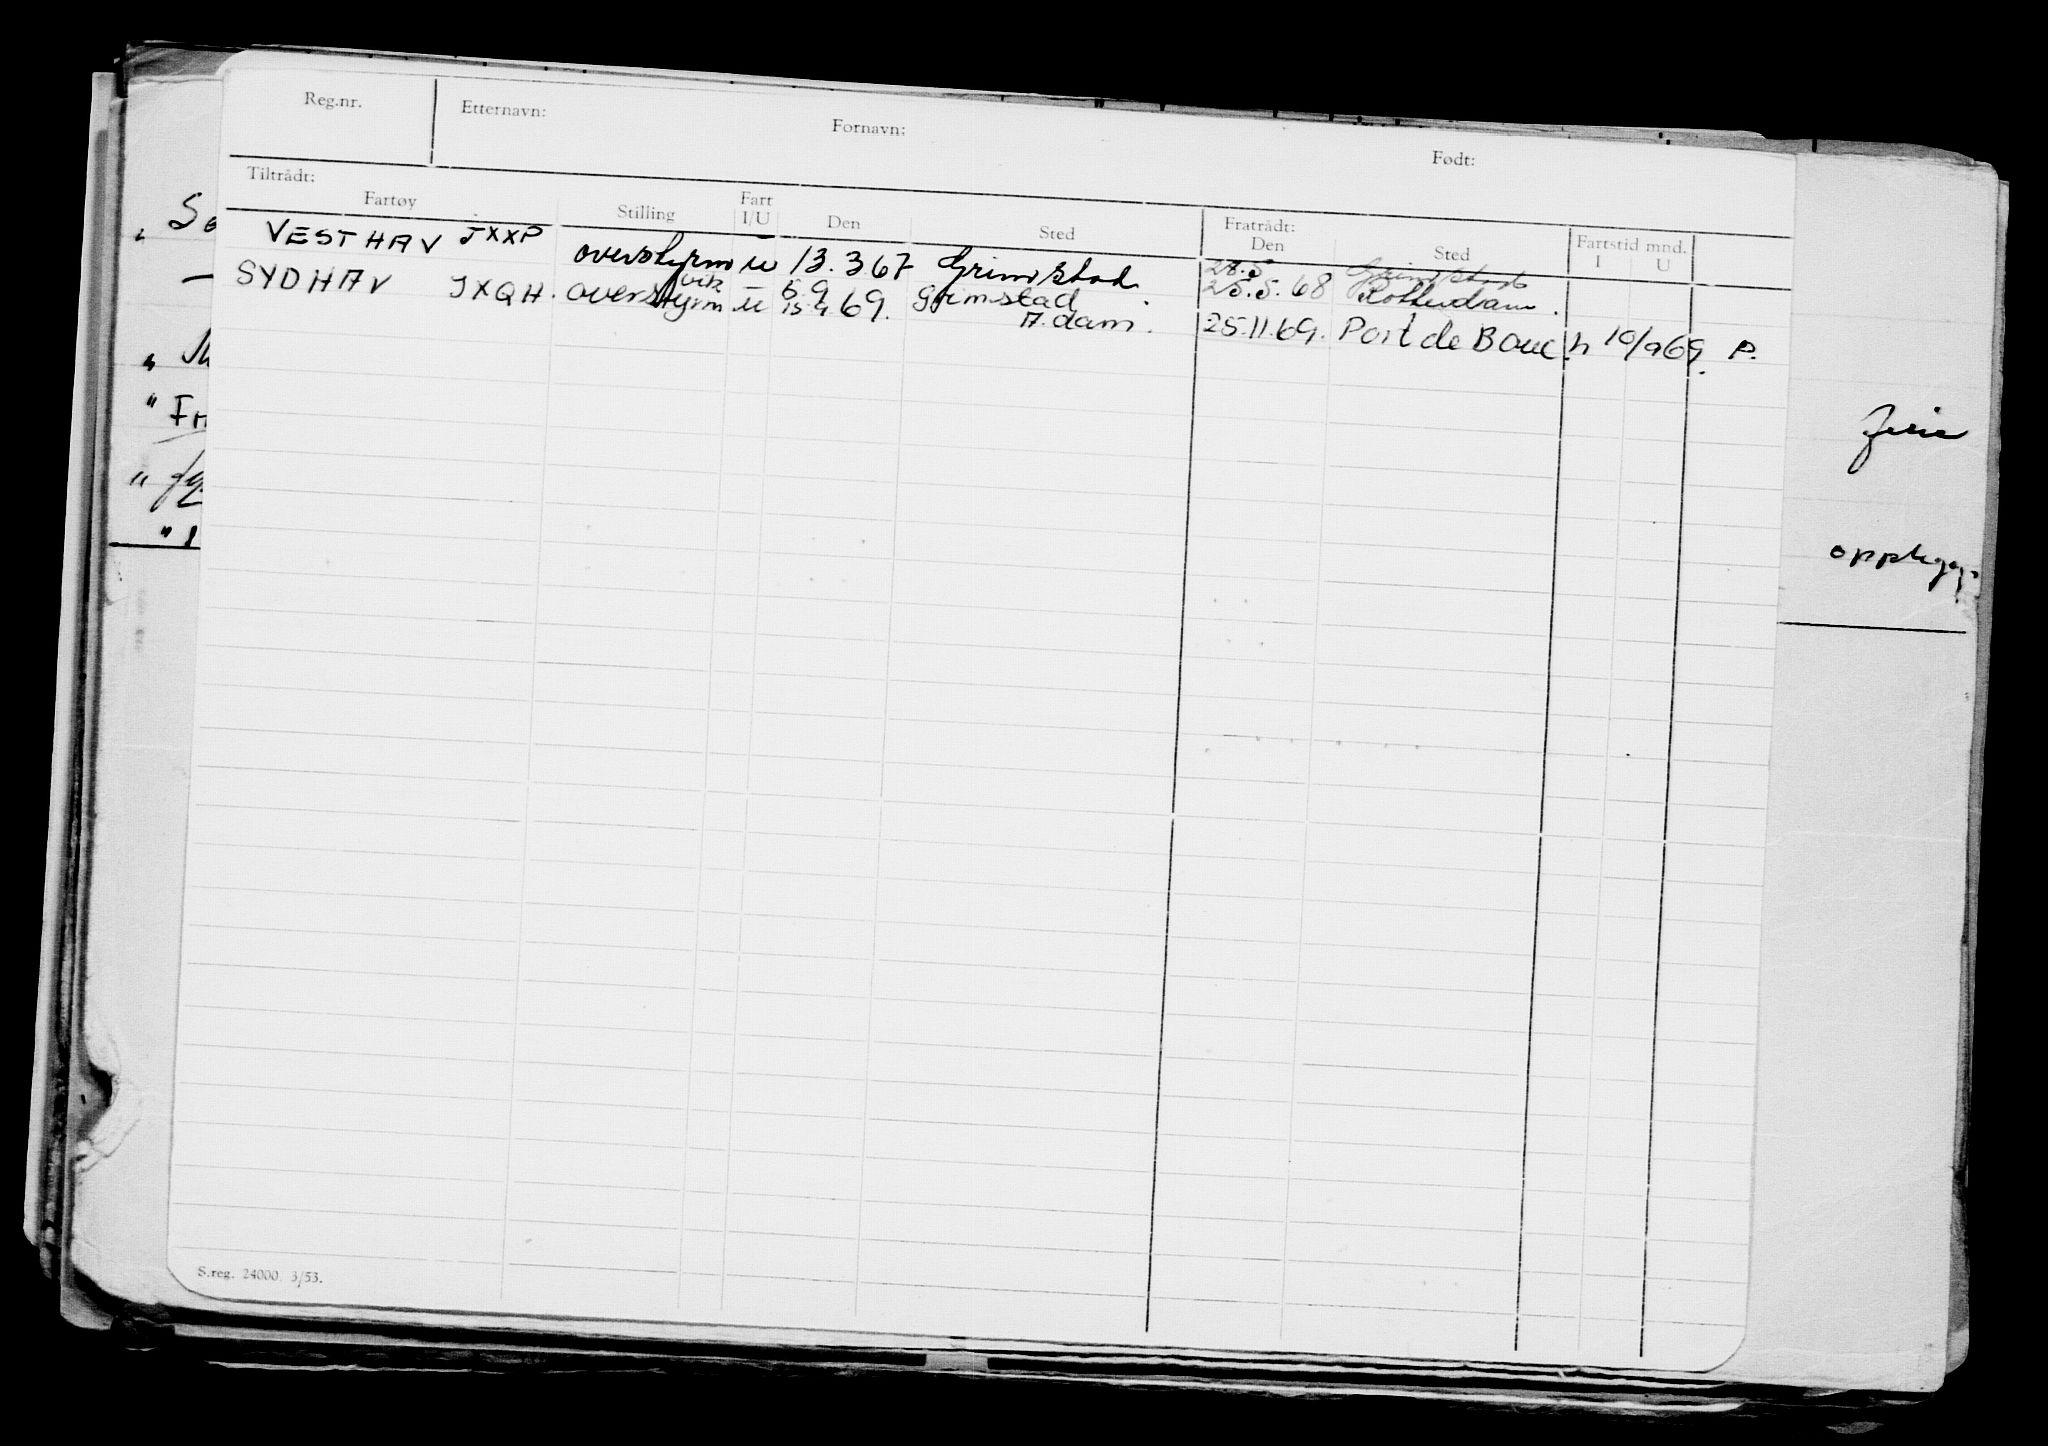 Reg.nr. Etternavn: Fornavn: Født:
Tiltrådt: Fratrådt:
Fartøy Stilling Fart I/U Den Sted Den Sted Fartstid mnd. I U
VESTHAV JXXP overstyrm u 13.367 Grimstad 28.5 Grimstad
25.5.68 Rotterdam.
SYDHAV JXQH. overstyrm vik u 5.9 Grimstad
15.9.69. A.dam. 25.11.69. Port de Bouc. h 10/9 69. P.
ferie
opplegg
S.reg. 24000. 3/53.